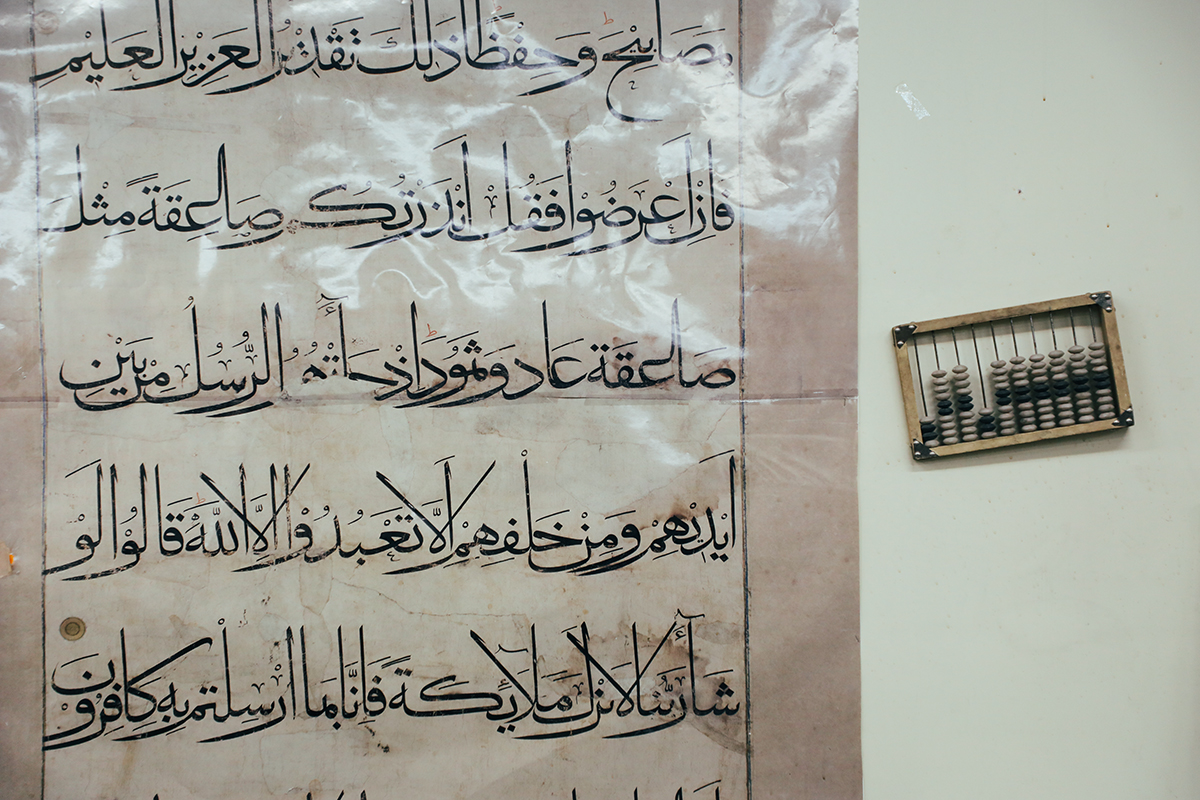 مصابيح وحفظا ذلك تقدير العزيز العليم
فان اعرضوا فقل انذرتكم صاعقة مثل
صاعقة عاد وثمود اذ جاءتهم الرسل من بين
ايديهم ومن خلفهم الا تعبدوا الا الله قالوا لو
شآء ربنا لانزل ملائكة فانا بما ارسلتم به كافرون